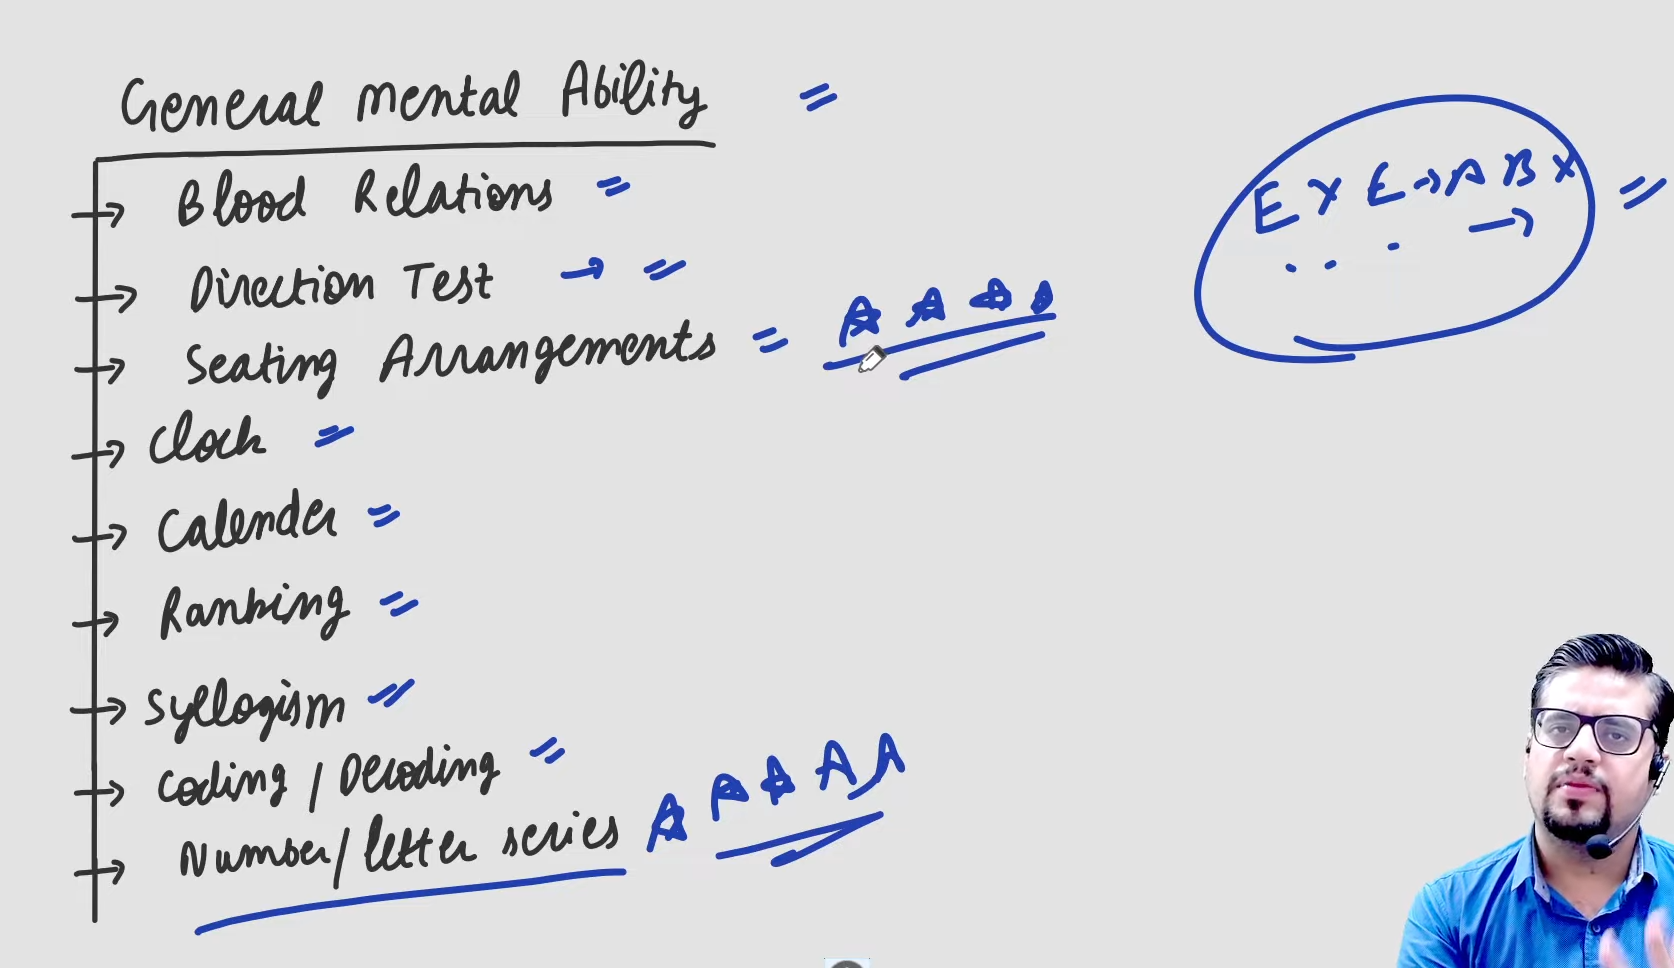 General mental Ability =
Blood Relations =
Direction Test → =
Seating Arrangements =
Clock =
Calender =
Ranking =
Syllogism =
Coding / Decoding =
Number/letter series